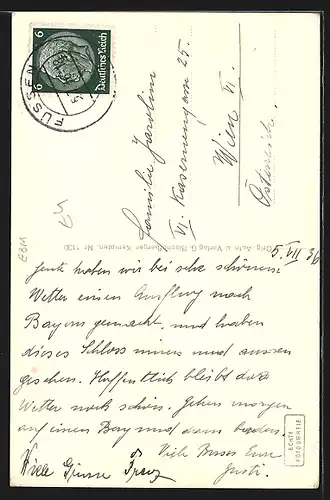 6 Deutsches Reich 6
FÜSSEN
Familie Jarolim
VI. Kasernengasse 25.
Wien VI.
Österreich.
Orig.-Aufn. u. Verlag G. Kempten. Nr. 1130
EBM
5. VII 36
heute haben wir bei sehr schönem
Wetter einen Ausflug nach
Bayern gemacht, und haben
dieses Schloss innen und aussen
gesehen. Hoffentlich bleibt das
Wetter noch schön. Gehen morgen
auf einen Berg und dann baden.
Viele Bussi Eure
Gusti.
Viele Grüsse Franz
ECHTE
FOTOGRAFIE